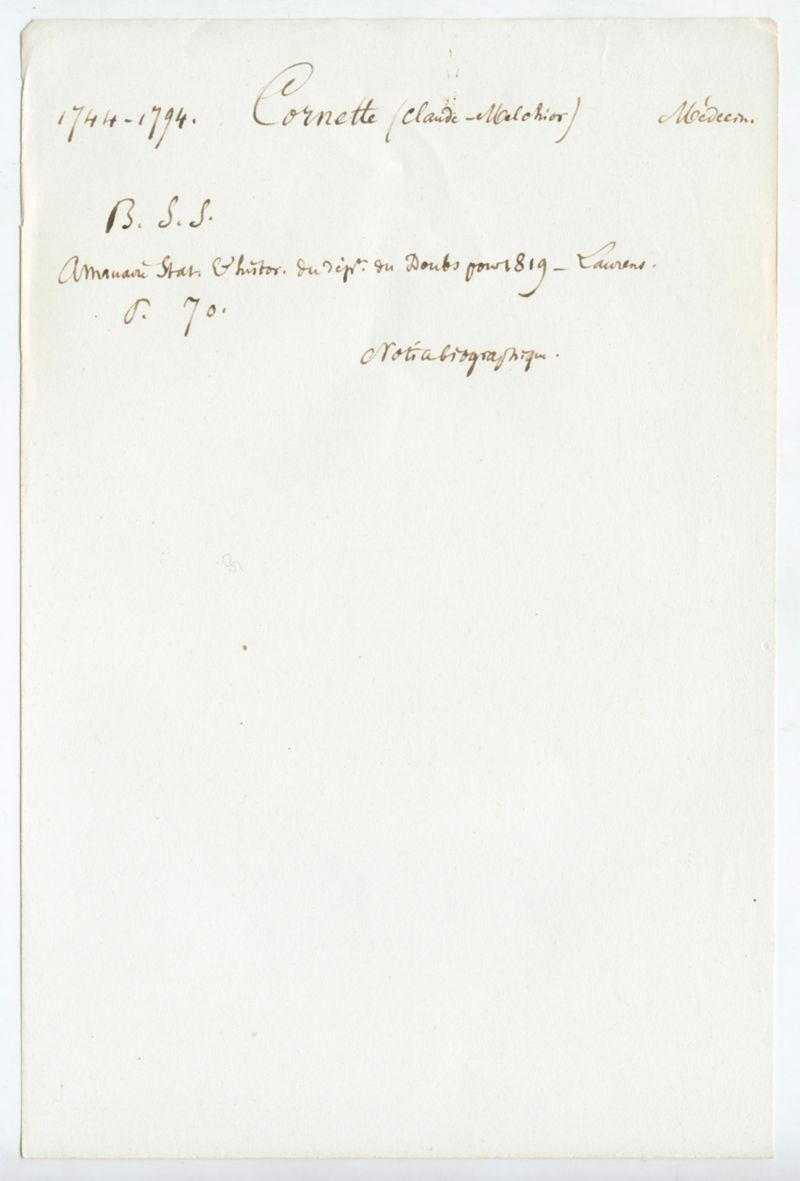 1744-1794. Cornette (Claude-Melchior) Médecin.
B. S. S.
Annuaire Stat. & histor. du dépt. du Doubs pour 1819 - Laurens.
P. 70.
Notice biographique.